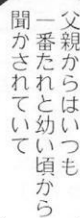 父親からはいつも
一番たれと幼い頃から
聞かされていて